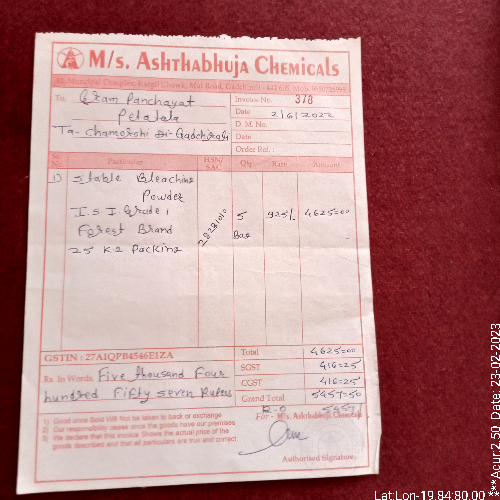 M/s. Ashthabhuja Chemicals
To, Gram Panchayat
Petatala
Ta- Chamorshi Di- Gadchiroli
Invoice No. 378
Date 2/6/2022
D. M. No.
Date
Order Ref. :
Sr. No. Particular HSN/ SAC Qty. Rate Amount
1) Stable Bleaching Powder
I.S.I Grade 1
Forest Brand
25 kg Packing
28281010 5 Bag 925/- 4625=00
GSTIN : 27AIQPB4546E1ZA
Total 4625=00
SGST 416=25
CGST 416=25
Grand Total 5457=50
R.O 5457/
Rs. In Words. Five thousand Four
hundred Fifty seven Rupees
1) Good once Sold Will Not be taken to back or exchange
2) Our responsibility cease once the goods have our premises
3) We declare that this invoice Shows the actual price of the
goods described and that all particulars are true and correct
For - M/s. Ashthabhuja Chemicals
Authorised Signature
Lat:Lon-19.84:80.00 *** Acur:2.50 Date: 23-02-2023